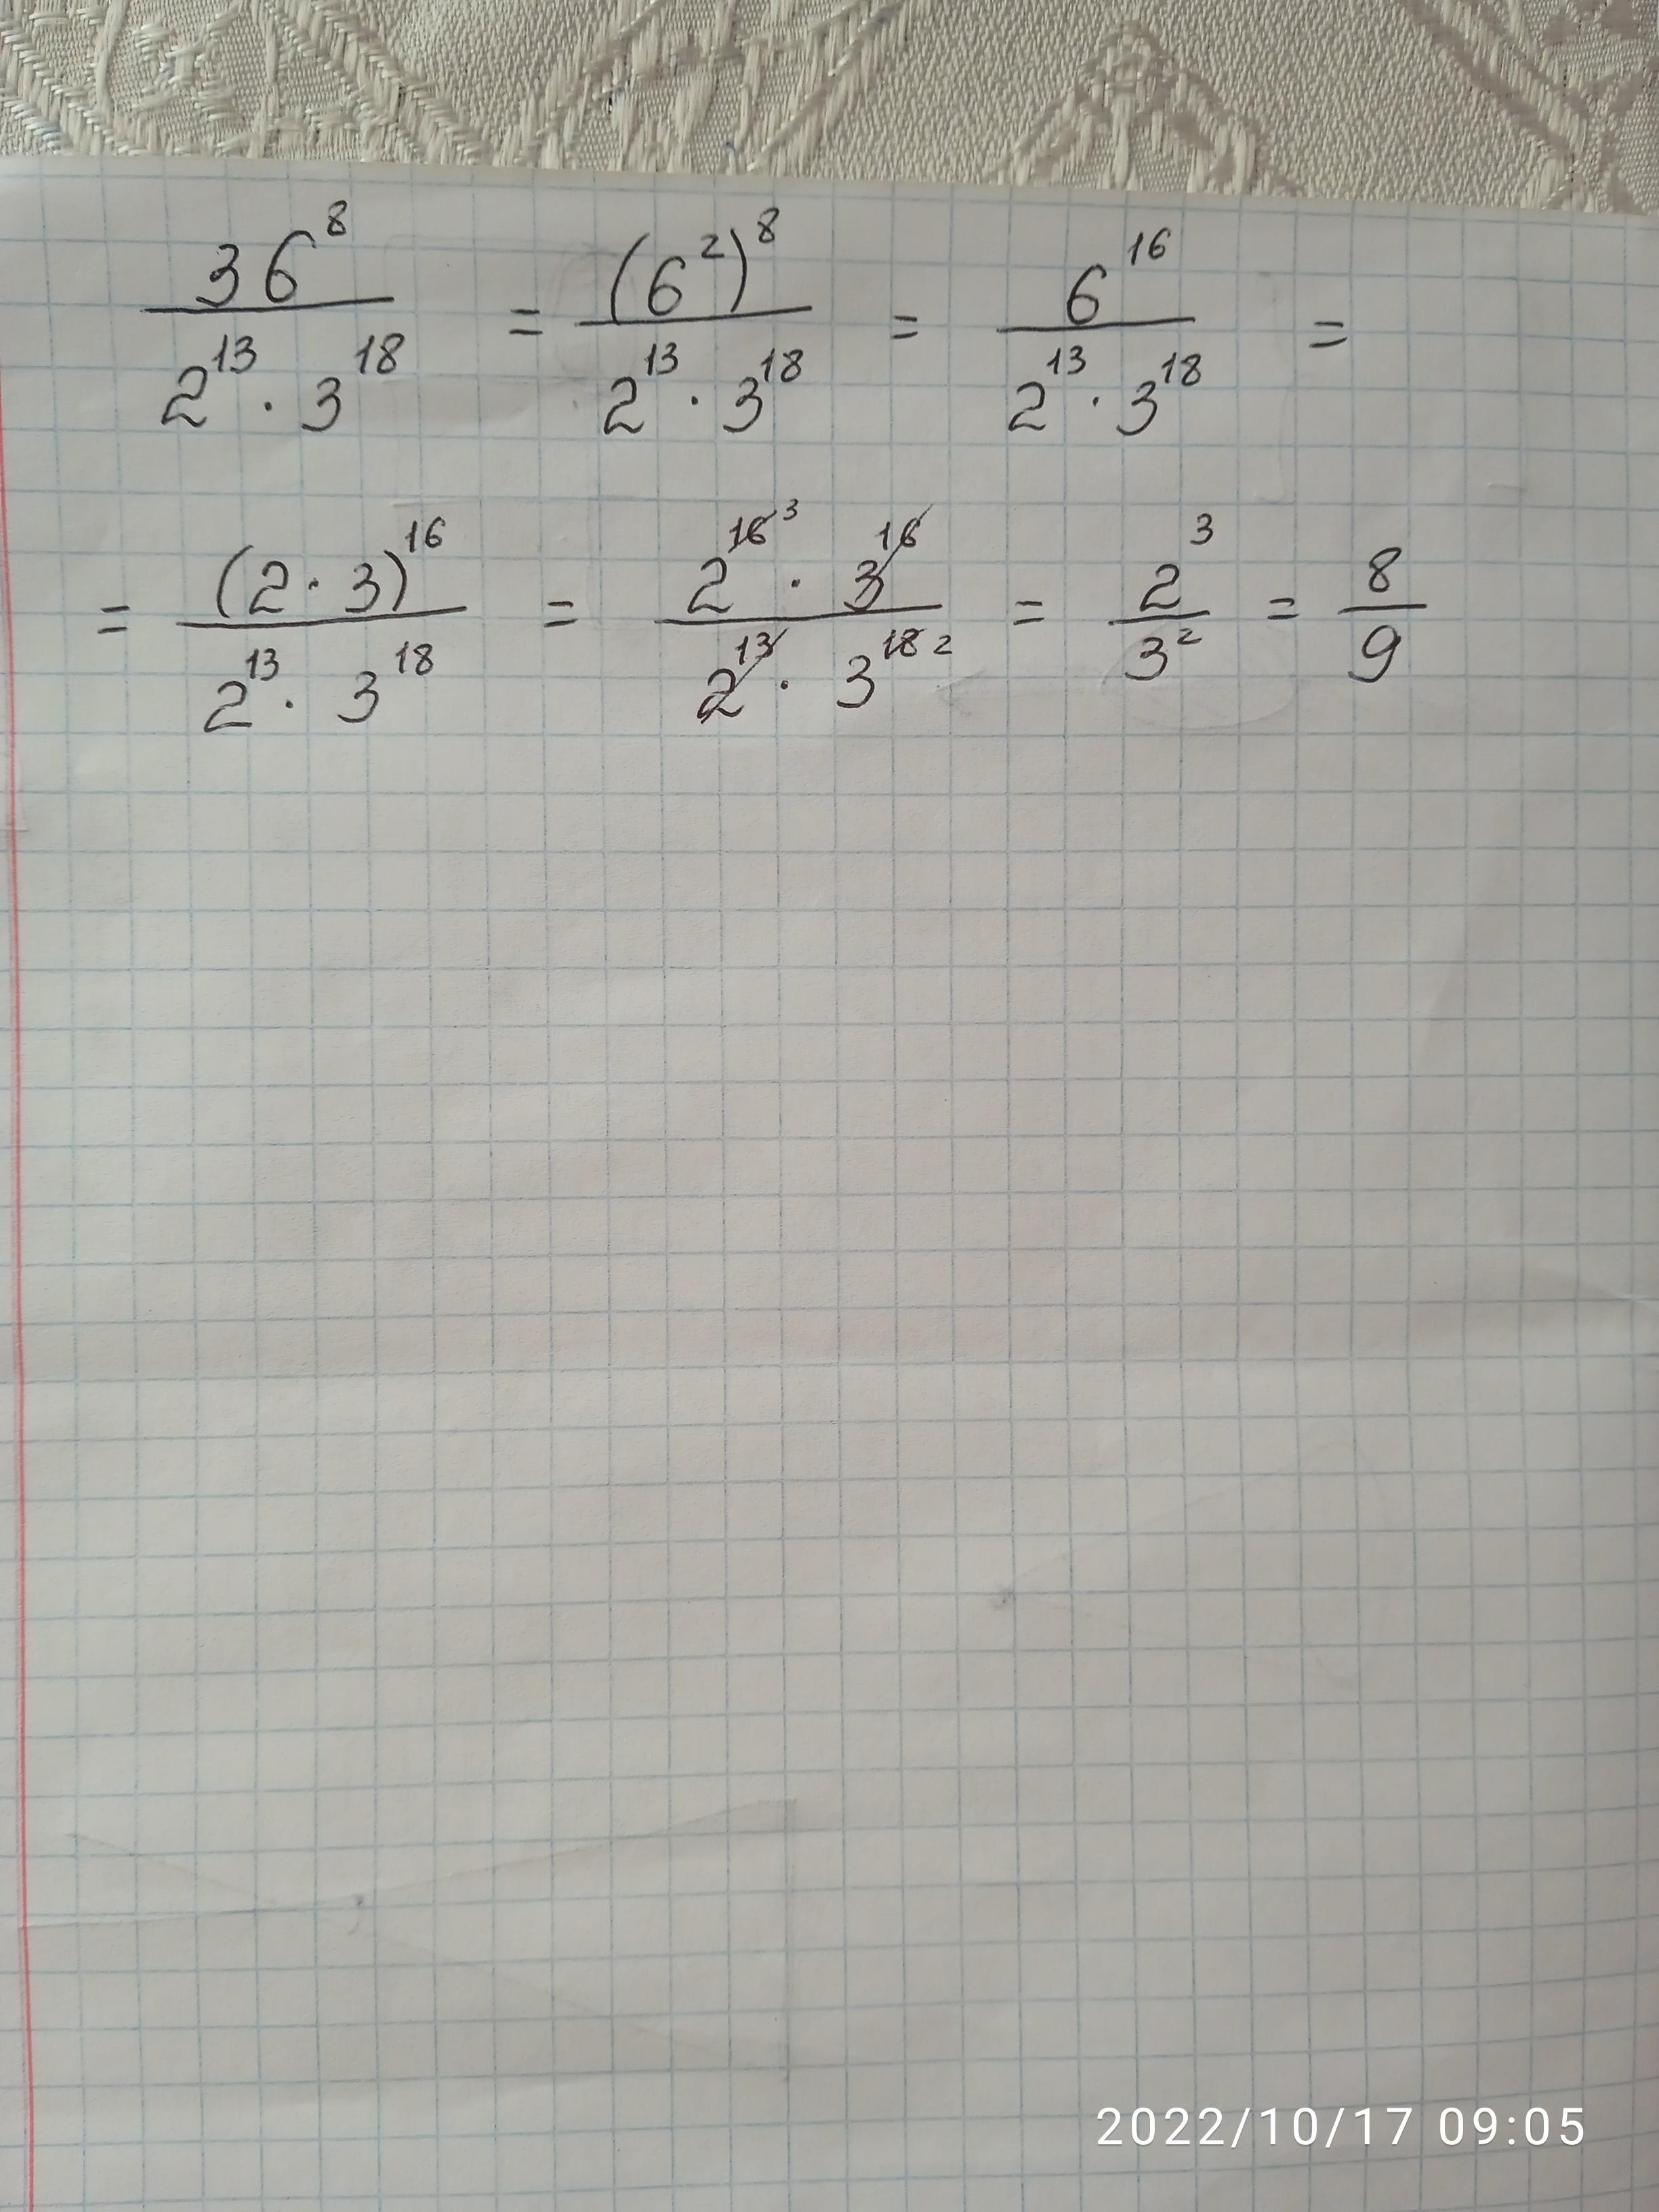 36⁸/(2¹³ · 3¹⁸) = (6²)⁸/(2¹³ · 3¹⁸) = 6¹⁶/(2¹³ · 3¹⁸) =
= (2 · 3)¹⁶/(2¹³ · 3¹⁸) = 2¹⁶ ³ · 3¹⁶/(2¹³ · 3¹⁸ ²) = 2³/3² = 8/9
2022/10/17 09:05